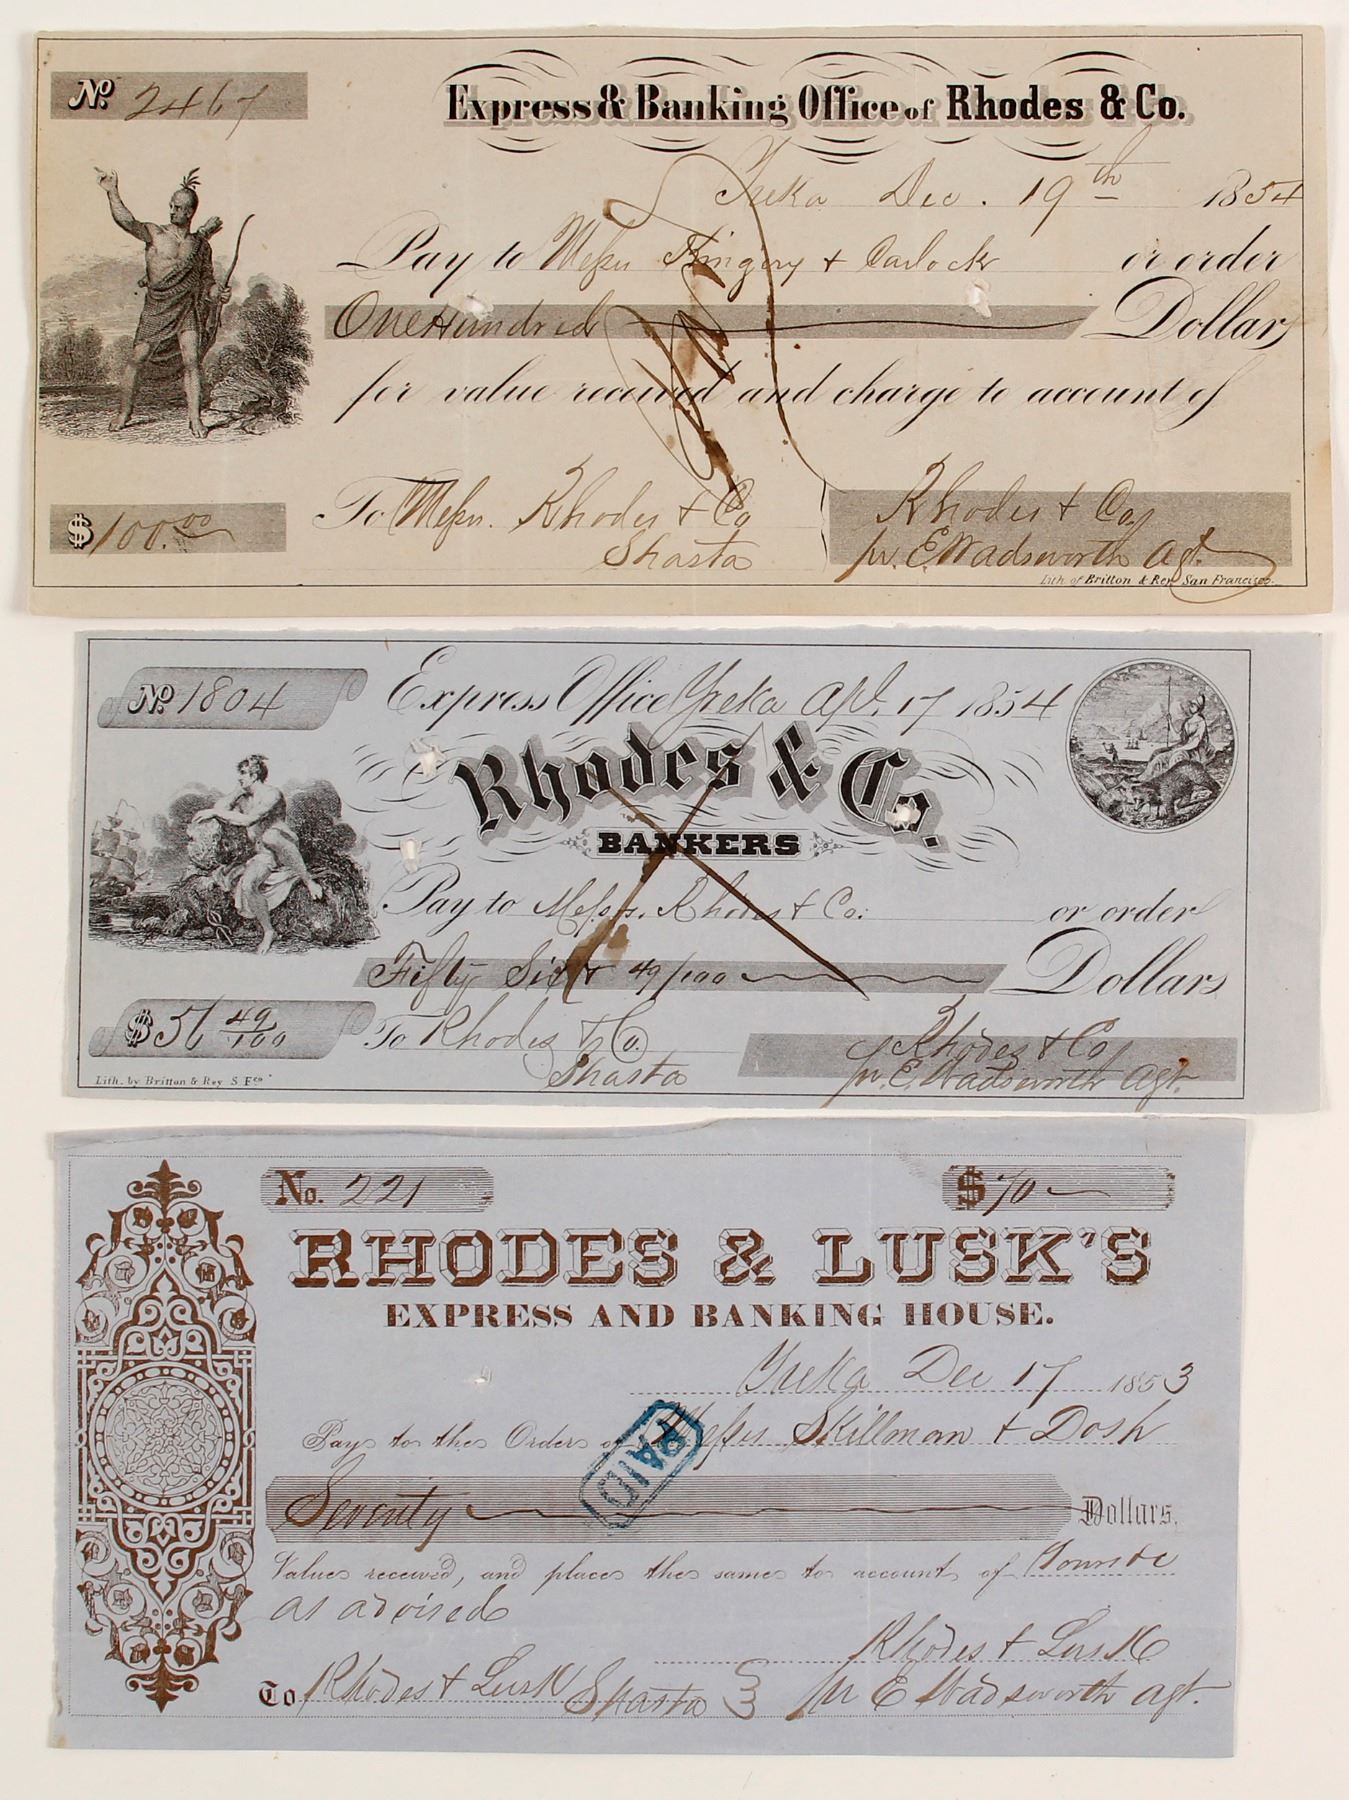 No. 2467
Express & Banking Office of Rhodes & Co.
Yreka Dec. 19th 1854
Pay to Messrs Kingery & Carlock or order
One Hundred Dollars
for value received and charge to account of
$100.00
To Messrs. Rhodes & Co
Shasta
Rhodes & Co
pr. E. Wadsworth Agt.
Lith of Britton & Rey San Francisco.
No. 1804
Express Office Yreka Apl. 17 1854
Rhodes & Co.
BANKERS
Pay to Messrs. Rhodes & Co. or order
Fifty Six & 49/100 Dollars
$56 49/100
To Rhodes & Co.
Shasta
Rhodes & Co
pr. E. Wadsworth Agt.
Lith. by Britton & Rey S Fco
No. 221
$70
RHODES & LUSK'S
EXPRESS AND BANKING HOUSE.
Yreka Dec 17 1853
Pay to the Order of Messrs Skillman & Dosh
PAID
Seventy Dollars,
Value received, and place the same to account of Yours &c
as advised
Rhodes & Lusk
To Rhodes & Lusk Shasta
pr E Wadsworth agt.